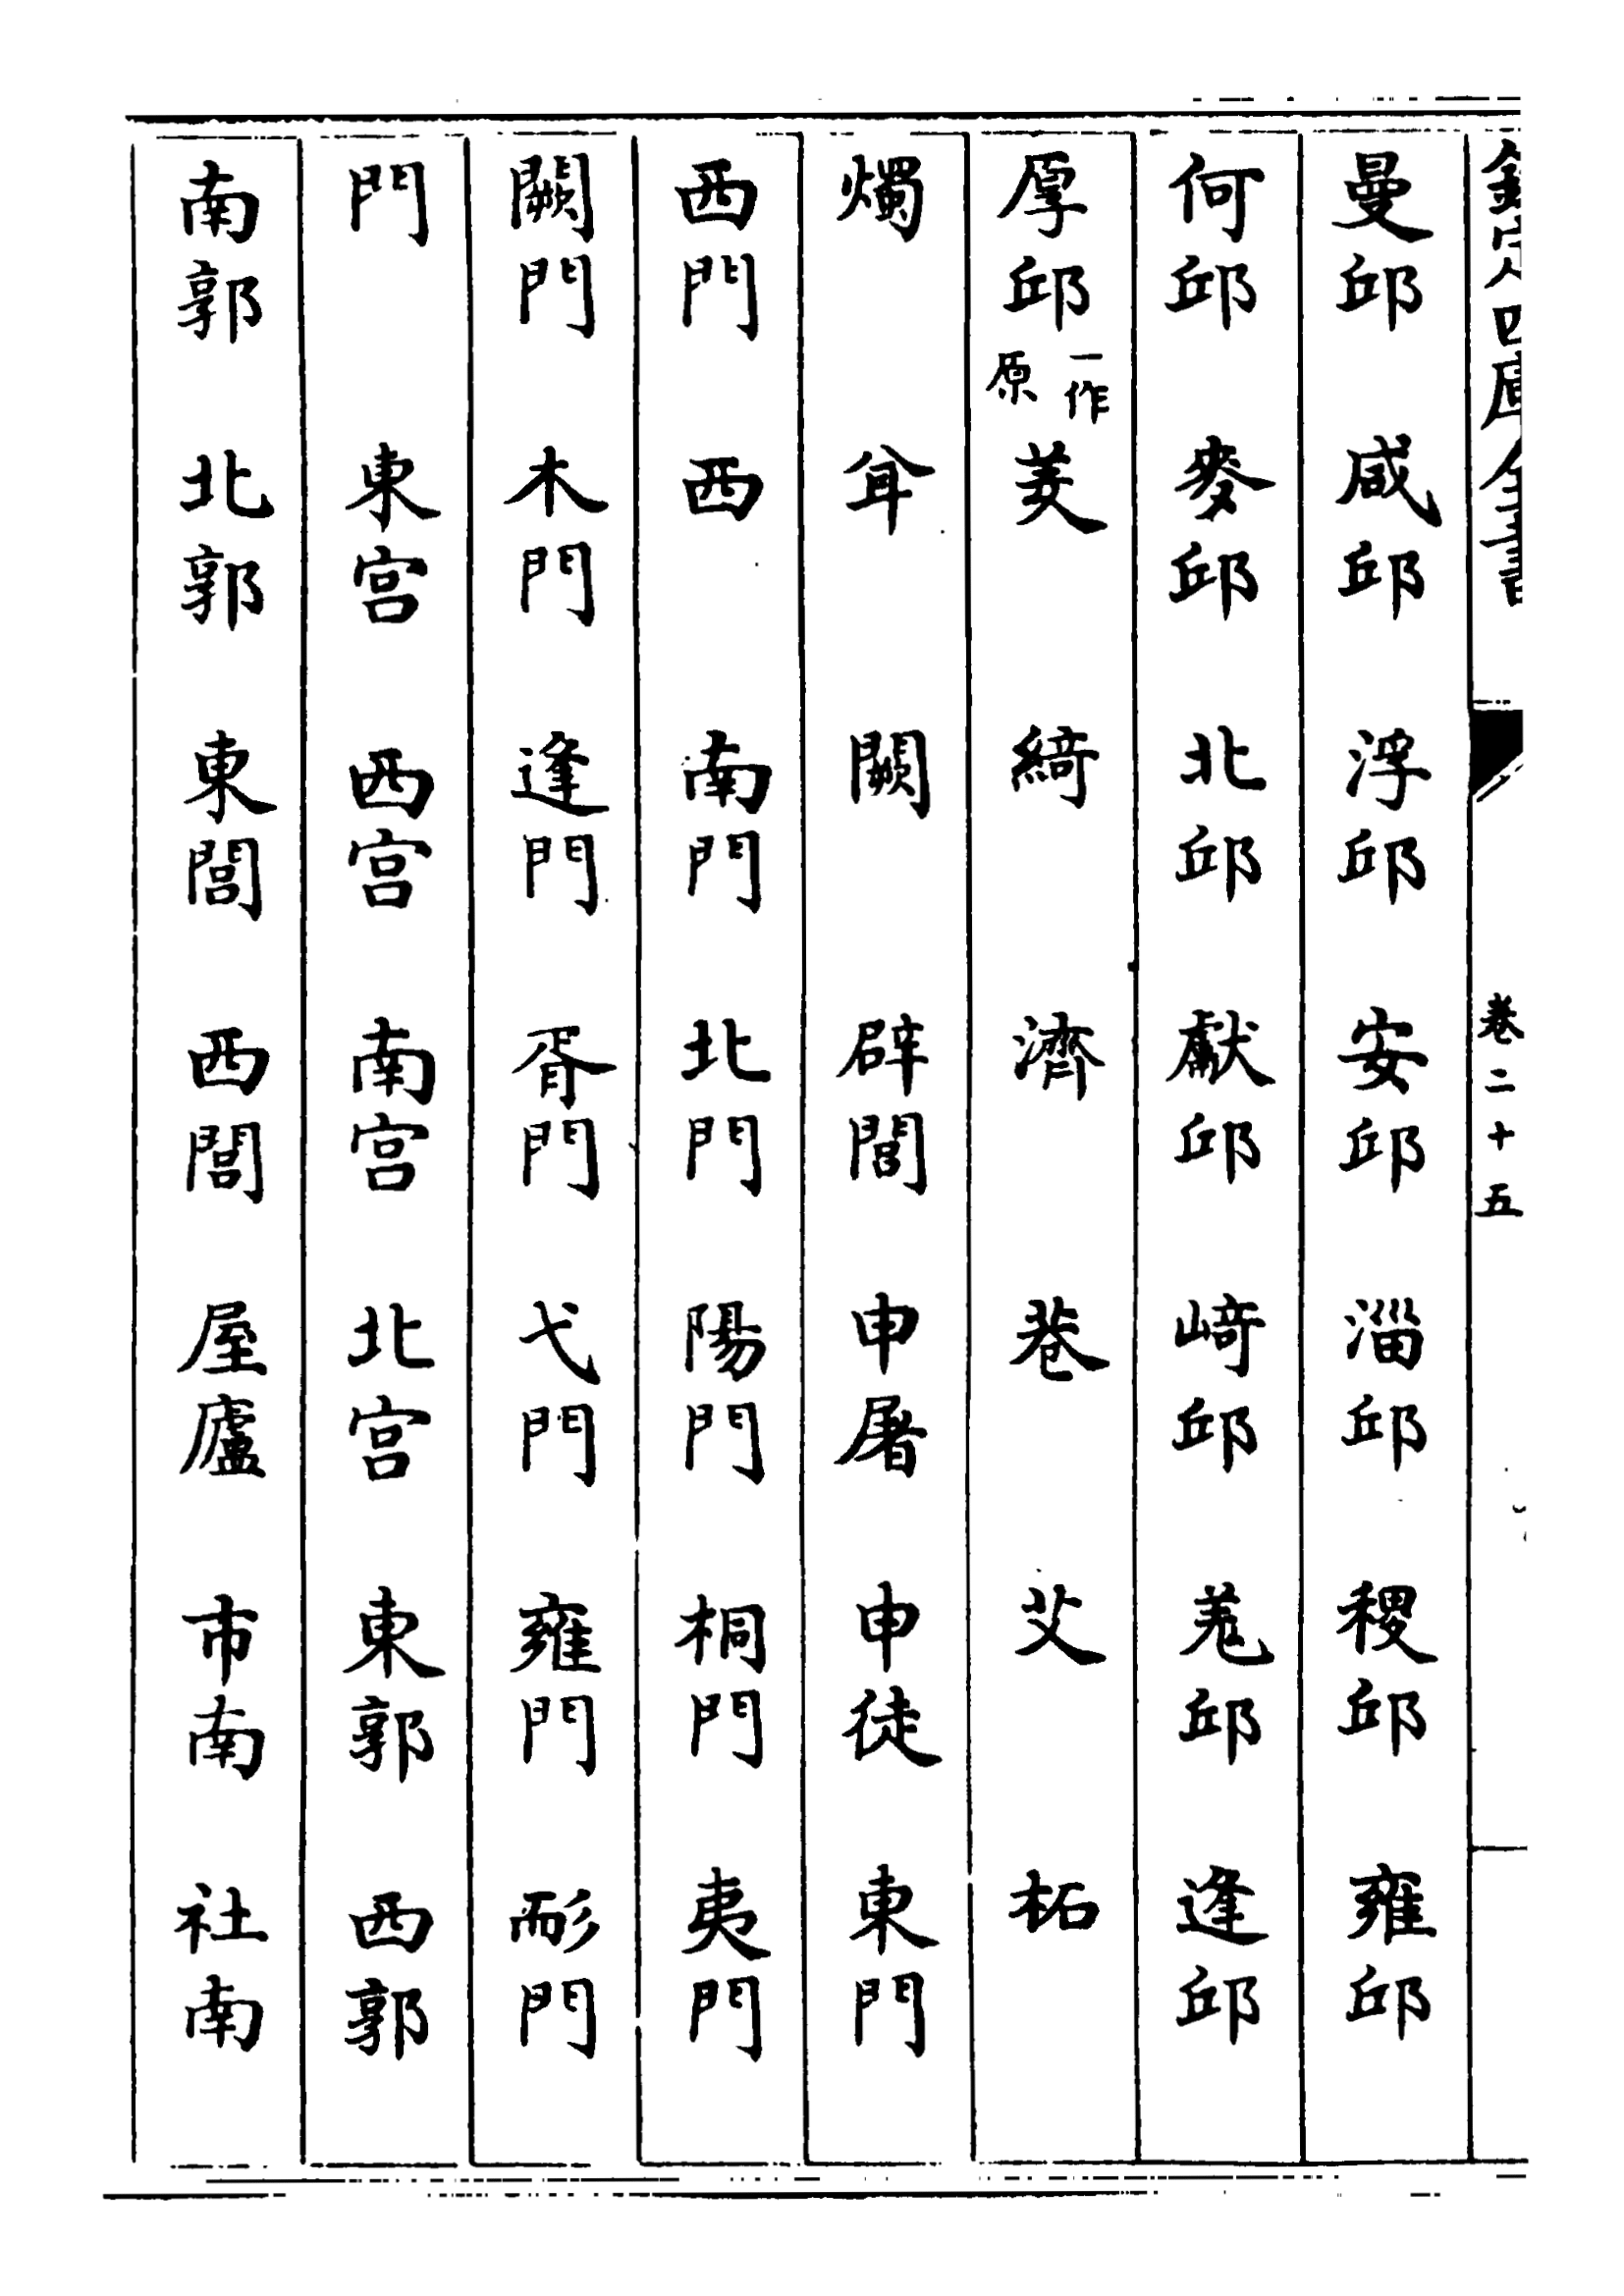 欽定四庫全書 卷二十五
曼邱 咸邱 浮邱 安邱 淄邱 稷邱 雍邱
何邱 麥邱 北邱 獻邱 崎邱 羌邱 逢邱
厚邱一作原 茭 綺 濟 巷 艾 柘
燭 耷 闕 辟閭 申屠 申徒 東門
西門 西 南門 北門 陽門 桐門 夷門
闕門 木門 逢門 胥門 弋門 雍門 耏門
門 東宫 西宫 南宫 北宫 東郭 西郭
南郭 北郭 東閭 西閭 屋廬 市南 社南